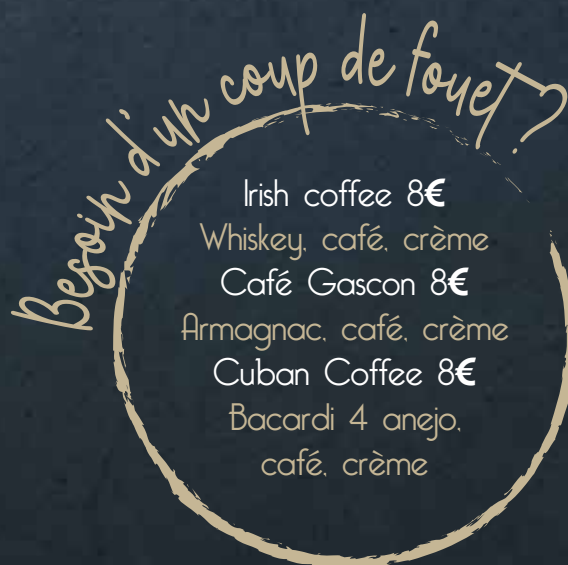 Besoin d'un coup de fouet ?
Irish coffee 8€
Whiskey, café, crème
Café Gascon 8€
Armagnac, café, crème
Cuban Coffee 8€
Bacardi 4 anejo,
café, crème